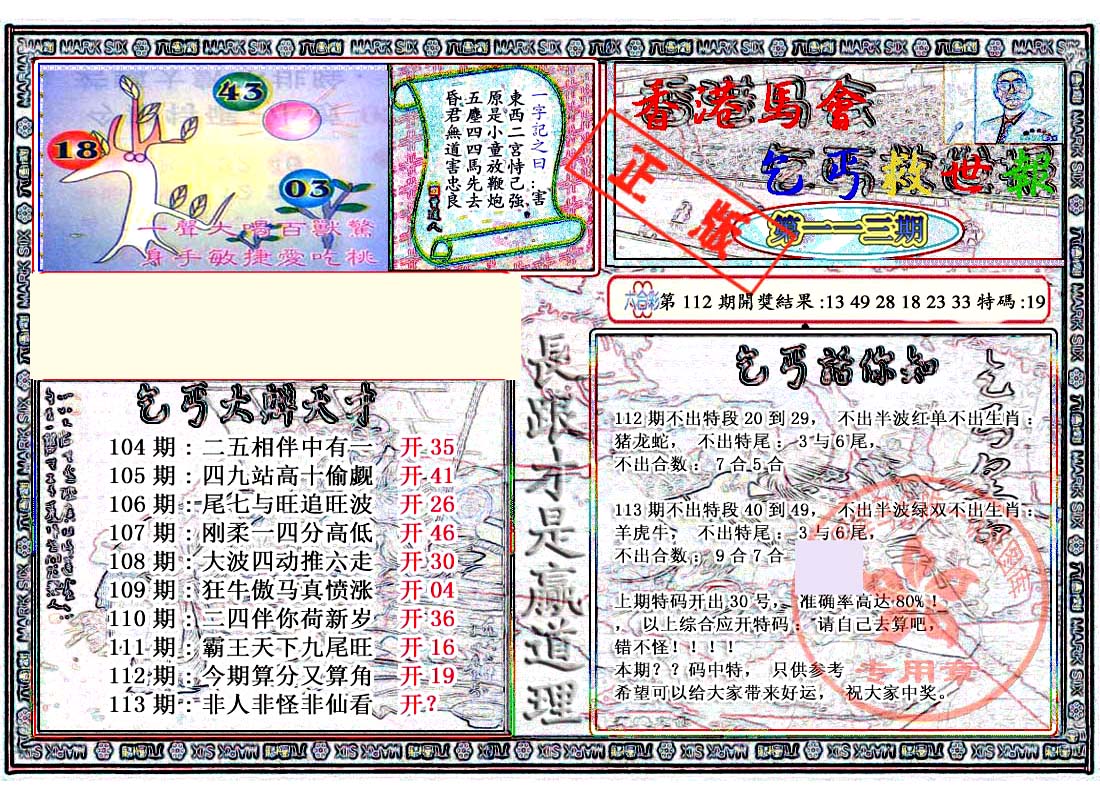 六合彩 MARK SIX
43
18
03
一聲大喝百獸驚
身手敏捷愛吃桃
一字記之曰：害
東西二宮恃己強
原是小童放鞭炮
五塵四四馬先去
昏君無道害忠良
香港馬會
乞丐救世報
第一一三期
正版
六合彩 第112期開獎結果:13 49 28 18 23 33 特碼:19
乞丐大辦天才
104期：二五相伴中有一 开35
105期：四九站高十偷觑 开41
106期：尾七与旺追旺波 开26
107期：刚柔一四分高低 开46
108期：大波四动推六走 开30
109期：狂牛傲马真愤涨 开04
110期：三四伴你荷新岁 开36
111期：霸王天下九尾旺 开16
112期：今期算分又算角 开19
113期：非人非怪非仙看 开?
長跟才是贏道理
乞丐話你知
112期不出特段20到29， 不出半波红单不出生肖：
猪龙蛇， 不出特尾：3与6尾，
不出合数：7合5合
113期不出特段40到49， 不出半波绿双不出生肖：
羊虎牛， 不出特尾：3与6尾，
不出合数：9合7合
上期特码开出30号， 准确率高达80%！
，以上综合应开特码： 请自己去算吧，
错不怪！！！！
本期？？码中特， 只供参考
希望可以给大家带来好运， 祝大家中奖。
专用章